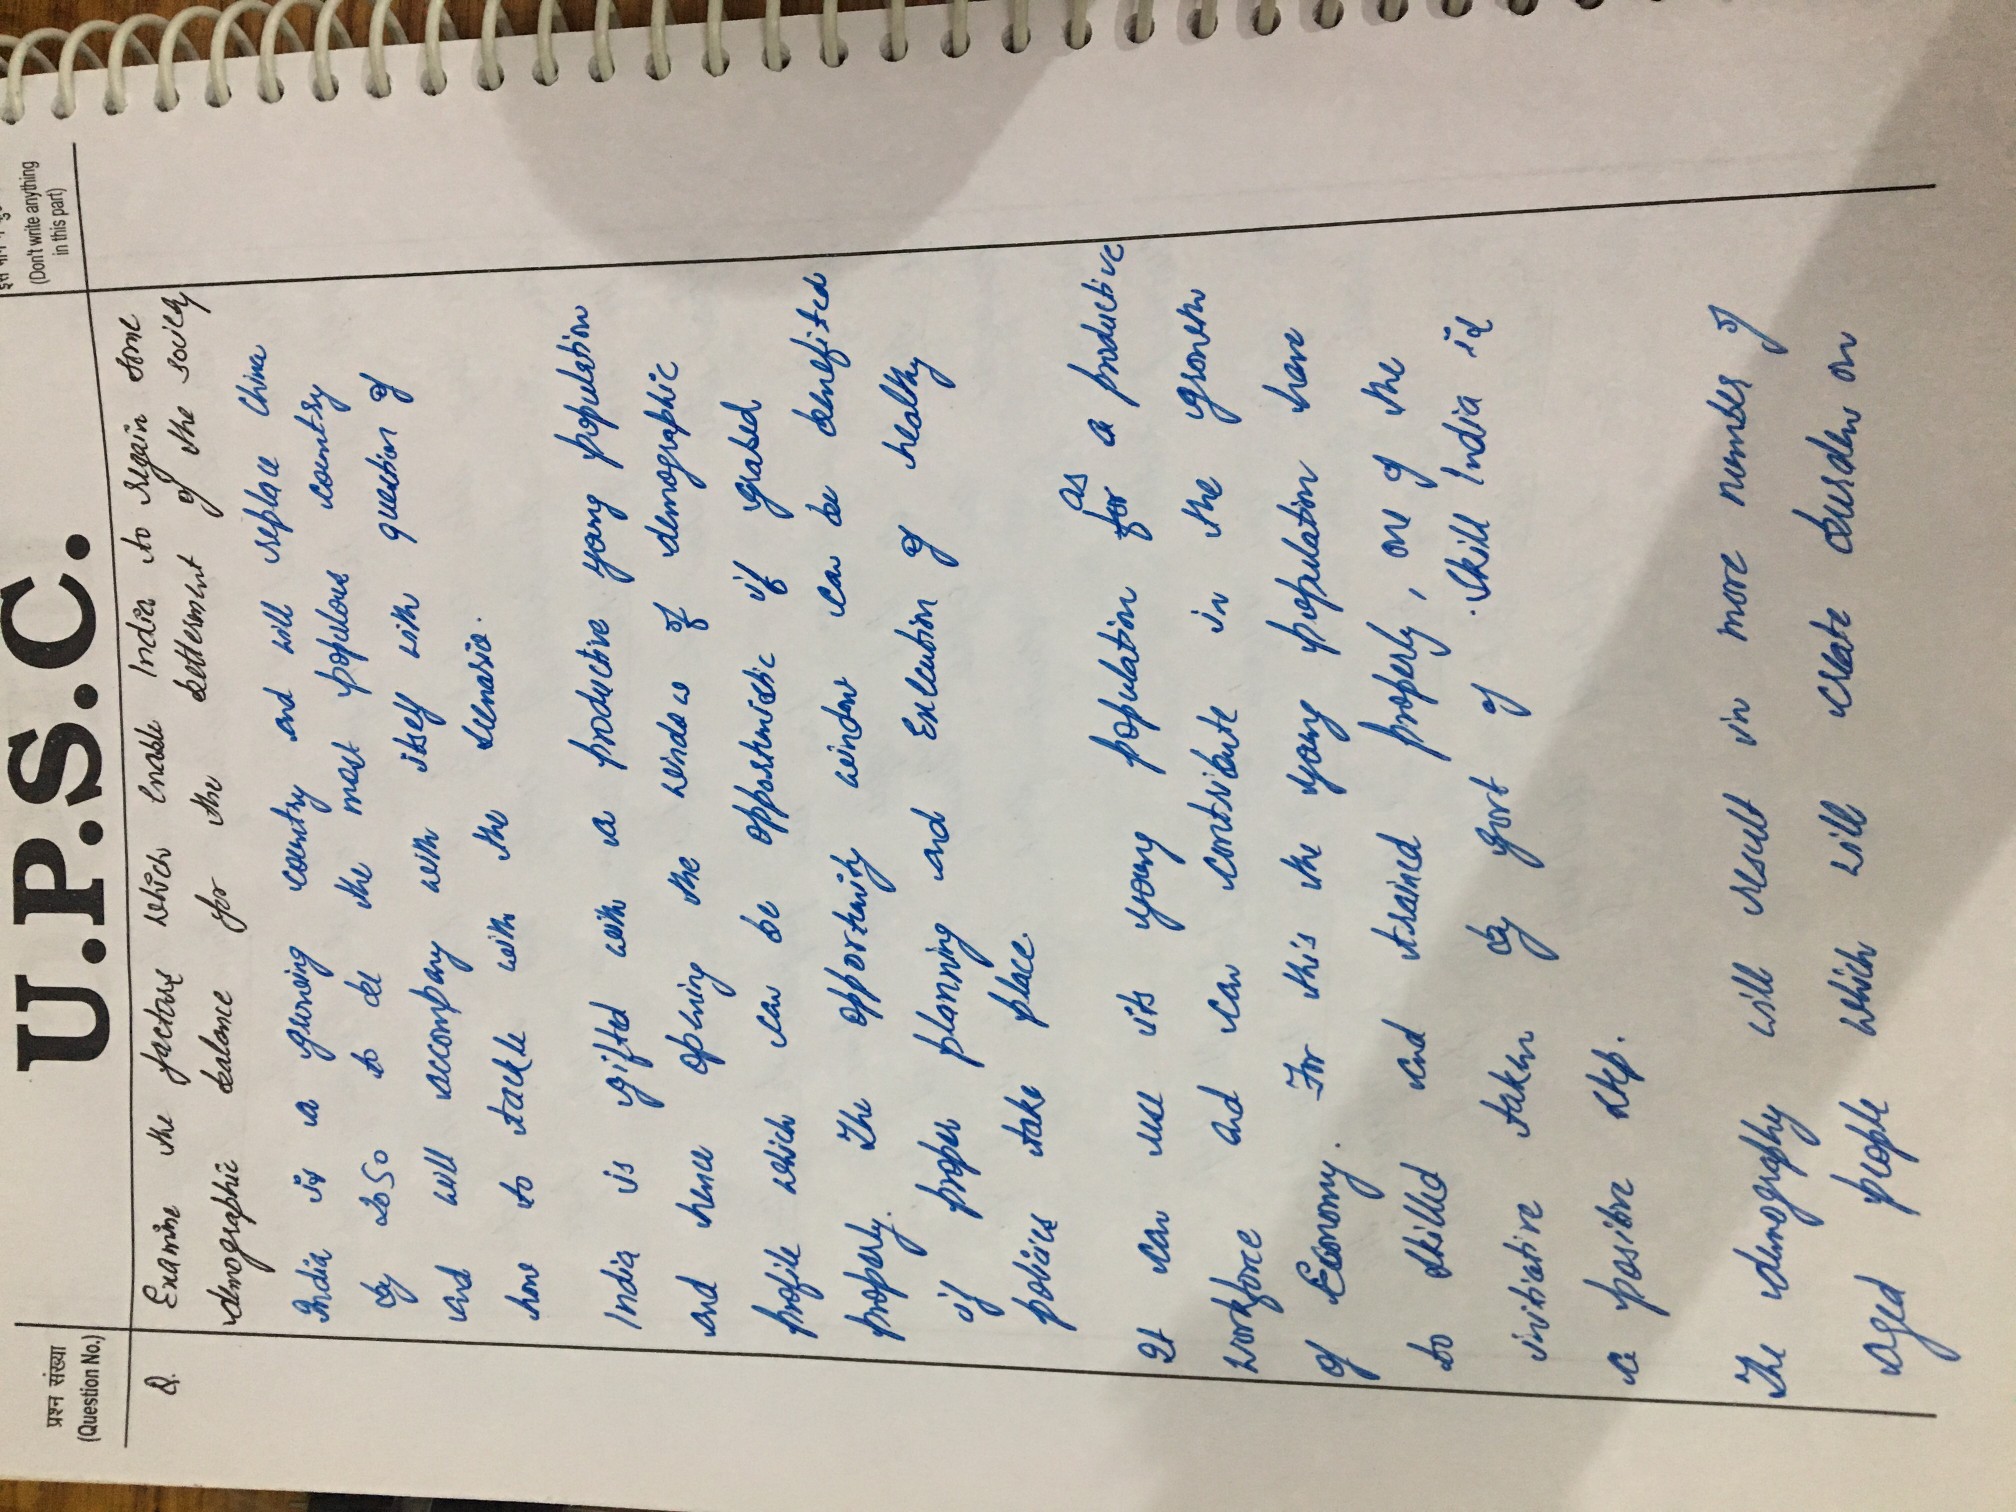 U.P.S.C.
प्रश्न संख्या
(Question No.)
(Don't write anything
in this part)
Q. Examine the factors which enable India to regain some
demographic balance for the betterment of the society
India is a growing country and will replace China
by 2050 to be the most populous country
and will accompany with itself with question of
how to tackle with the scenario.
India is gifted with a productive young population
and hence opening the window of demographic
profile which can be opportunistic if grabed
properly. The opportunity window can be benefited
if proper planning and Execution of healthy
policies take place.
It can use its young population for as a productive
workforce and can contribute in the growth
of Economy. For this the young population have
to skilled and trained properly, one of the
initiative taken by govt of. Skill India is
a positive step.
The demography will result in more number of
aged people which will create burden on